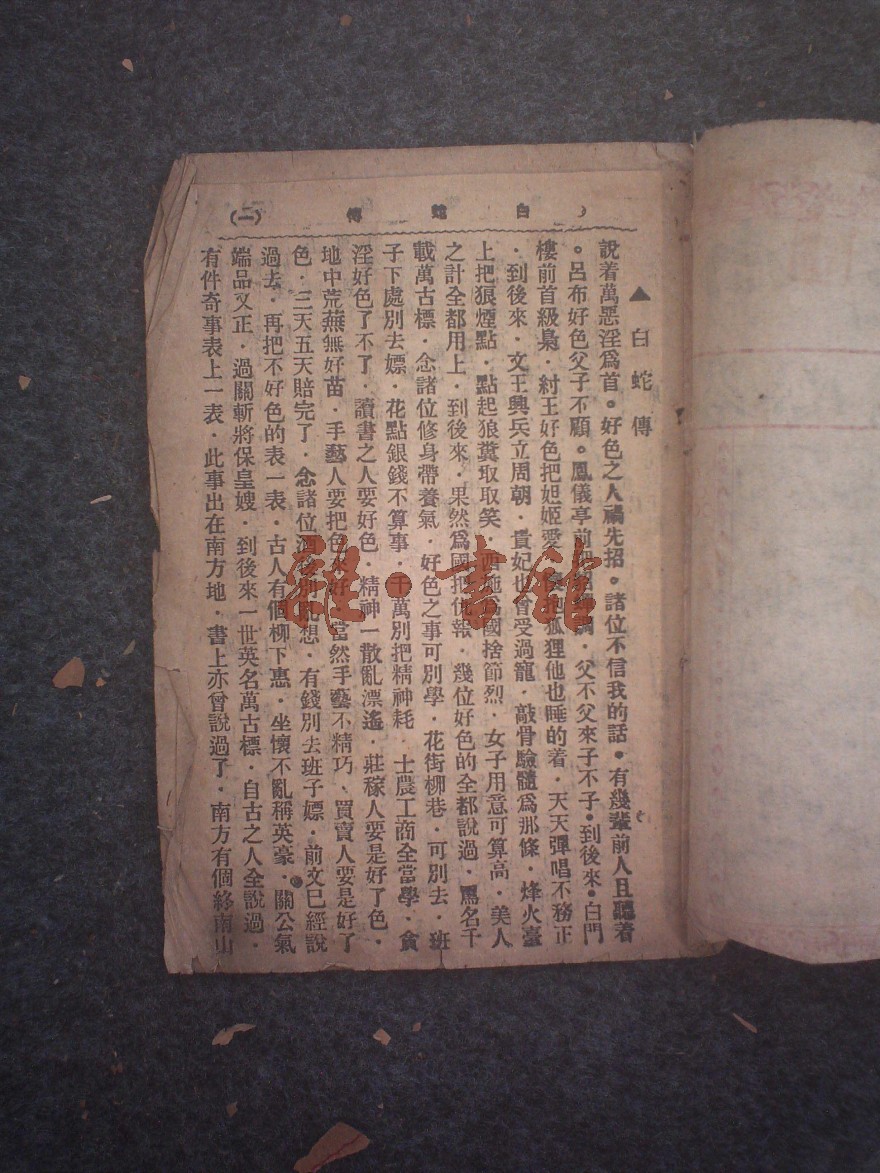 白蛇傳
(一)
▲白蛇傳
說着萬惡淫爲首。好色之人禍先招。諸位不信我的話。有幾輩前人且聽着
。呂布好色父子不顧。鳳儀亭前 父不父來子不子。到後來。白門
樓前首級梟．紂王好色把妲姬愛 抱狐狸他也睡的着．天天彈唱不務正
．到後來．文王興兵立周朝．貴妃也曾受過寵．敲骨驗髓爲那條．烽火臺
上把狼煙點．點起狼糞取取笑．西施爲國捨節烈．女子用意可算高．美人
之計全都用上．到後來．果然爲國把仇報．幾位好色的全都說過．罵名千
載萬古標．念諸位修身帶養氣．好色之事可別學．花街柳巷．可別去．班
子下處別去嫖．花點銀錢不算事．千萬別把精神耗．士農工商全當學．貪
淫好色了不了．讀書之人要好色．精神一散亂漂遙．莊稼人要是好了色．
地中荒蕪無好苗．手藝人要把色來好．當然手藝不精巧、買賣人要是好了
色．三天五天賠完了．念諸位酒後別亂想．有錢別去班子嫖．前文已經說
過去．再把不好色的表一表．古人有個柳下惠．坐懷不亂稱英豪．關公氣
端品又正．過關斬將保皇嫂．到後來一世英名萬古標．自古之人全說過．
有件奇事表上一表．此事出在南方地．書上亦曾說過了．南方有個終南山
雜·書館